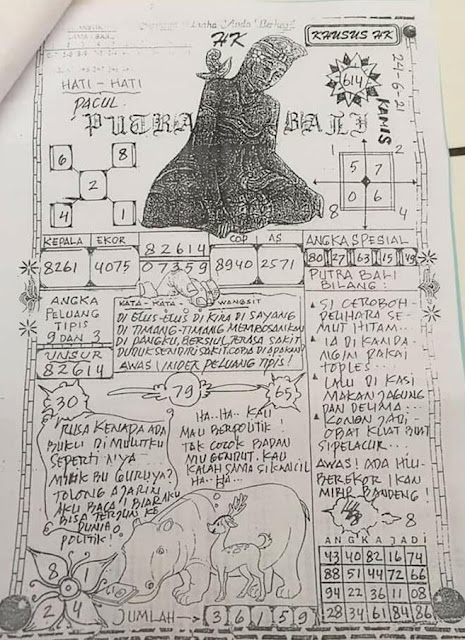 HK
KHUSUS HK
24-6-21
KAMIS
614
HATI - HATI
PACUL
PUTRA BALI
6 8
2
4 1
1 2
5 7
0 6
8 4
KEPALA EKOR
8261 4075
82614
07359
COP AS
8940 2571
ANGKA SPESIAL
80 27 63 15 49
ANGKA
PELUANG
TIPIS
9 DAN 3
UNSUR
82614
KATA - KATA WANGSIT
DI ELUS-ELUS DI KIRA DI SAYANG
DI TIMANG-TIMANG MEMBOSANKAN
DI PANGKU, BERSIUL, TERASA SAKIT
DUDUK SENDIRI SAKIT. COBA DI APAKAN?
AWAS! INDEX PELUANG TIPIS!
PUTRA BALI
BILANG:
SI CEROBOH
PELIHARA SE-
MUT HITAM...
IA DI KANDA-
NGIN PAKAI
TOPLES...
LALU DI KASI
MAKAN JAGUNG
DAN DELIMA...
KONON JADI
OBAT KUAT BUAT
SI PELACUR...
AWAS! ADA HIU
BEREKOR IKAN
MIRIP BANDENG!
8
30
79
65
RUSA KENAPA ADA
BUKU DI MULUTKU
SEPERTINYA
MILIK BU GURUYA?
TOLONG AJARIN
AKU BACA! BIAR AKU
BISA TERJUN KE
DUNIA
POLITIK!
HA-HA- KAU
MAU BERPOLITIK!
TAK COCOK BADAN
MU GENDUT. KAU
KALAH SAMA SI KANCIL
HA-HA...
8 1
2 4
JUMLAH 36159
ANGKA JADI
43 40 82 16 74
88 51 44 72 66
94 22 36 11 08
28 34 61 84 86